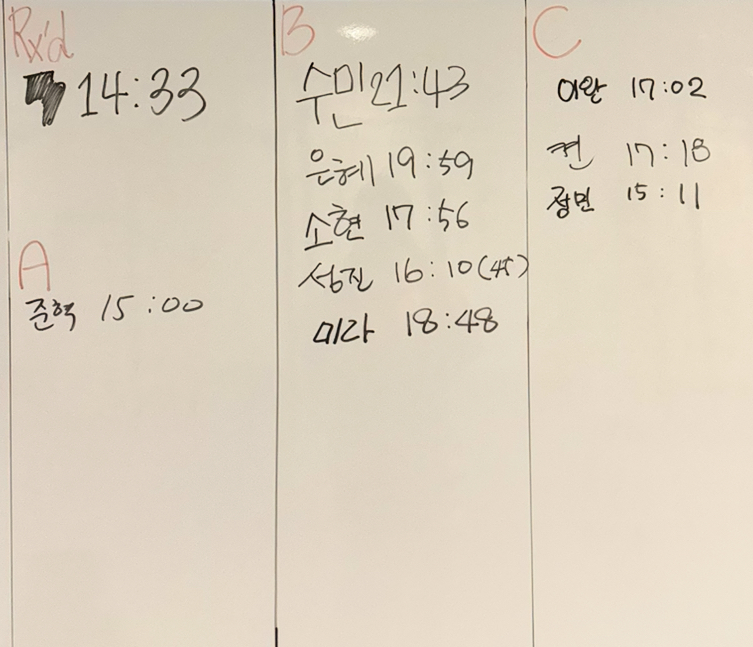 Rx'd
14:33
A
준혁 15:00
B
수민 21:43
은혜 19:59
소현 17:56
성진 16:10
미라 18:48
C
이완 17:02
켠 17:18
정민 15:11